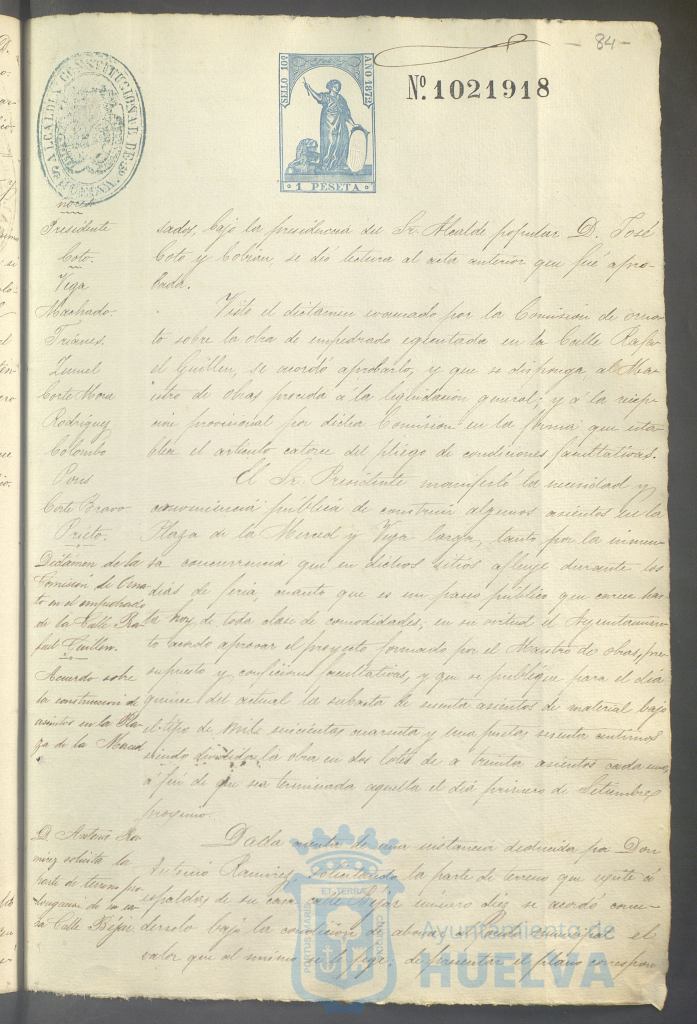 - 84 -
ALCALDIA CONSTITUCIONAL DE HUELVA
SELLO 10º
AÑO 1872
1 PESETA
Nº 1021918
nores
Presidente
Coto.
Vega
Machado.
Trianes.
Zunuel
Corte Mora
Rodriguez
Colombo
Pores
Corte Bravo
Prieto.
Dictámen de la
Comision de Orna-
to en el empedrado
de la Calle Ra-
fael Guillen.
Acuerdo sobre
la construccion de
asientos en la Pla-
za de la Merced
D. Antonio Ra-
mirez solicita la
parte de terreno
de su ca-
sa Calle Béjar
sados, bajo la presidencia del Sr. Alcalde popular D. José
Coto y Cobian, se dió lectura al acta anterior que fué apro-
bada.
Visto el dictámen evacuado por la Comision de orna-
to sobre la obra de empedrado egecutada en la Calle Rafa-
el Guillen, se acordó aprobarlo, y que se disponga al Ma-
estro de obras proceda á la liquidacion general; y á la recep-
cion provisional por dicha Comision en la forma que esta-
blece el articulo catorce del pliego de condiciones facultativas.
El Sr. Presidente manifestó la necesidad y
conveniencia pública de construir algunos asientos en la
Plaza de la Merced y Vega larga, tanto por la inmen-
sa concurrencia que en dichos sitios afluye durante los
dias de feria, cuanto que es un paseo público que carece has-
ta hoy de toda clase de comodidades; en su virtud el Ayuntamien-
to acordo aprovar el proyecto formado por el Maestro de obras, pre-
supuesto y condiciones facultativas, y que se publique para el dia
quince del actual la subasta de sesenta asientos de material bajo
el tipo de mil seiscientas cuarenta y una pesetas sesenta centimos
siendo dividida la obra en dos lotes de á treinta asientos cada uno,
á fin de que sea terminada aquella el dia primero de Setiembre
proximo.
Dada cuenta de una instancia deducida por Don
Antonio Ramirez, solicitando la parte de terreno que existe á
espaldas de su casa calle Béjar número diez se acordó conce-
derselo bajo la condicion de abonar al fondo municipal el
valor que al mismo se le fije; de presentar el plano correspon-
PORTUS MARIS ET TERRAE CUSTODIA
Ayuntamiento de
HUELVA